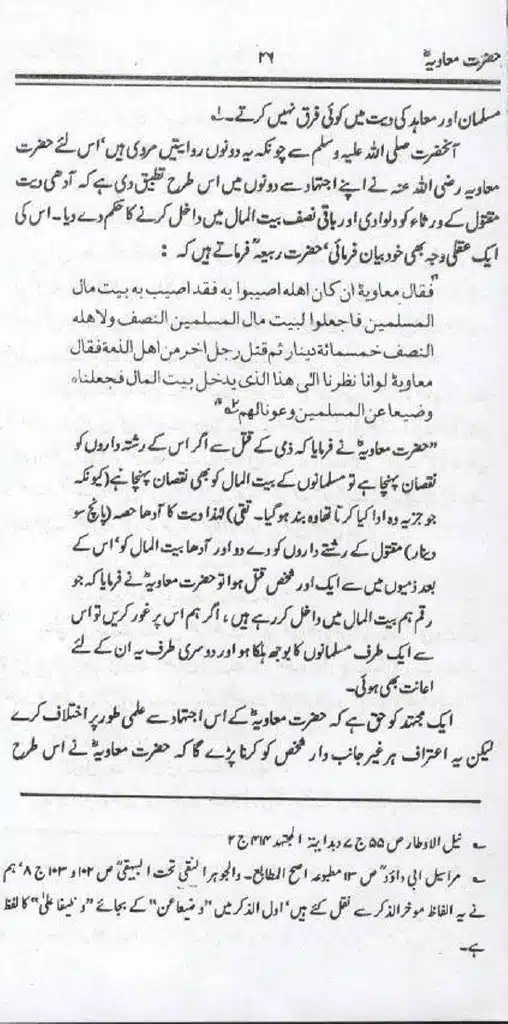 حضرت معاویہؓ ۲۶
مسلمان اور معاہد کی دیت میں کوئی فرق نہیں کرتے۔ ؎۱
آنحضرت صلی اللہ علیہ وسلم سے چونکہ یہ دونوں روایتیں مروی ہیں‘ اس لئے حضرت
معاویہ رضی اللہ عنہ نے اپنے اجتہاد سے دونوں میں اس طرح تطبیق دی ہے کہ آدھی دیت
مقتول کے ورثاء کو دلوا دی اور باقی نصف بیت المال میں داخل کرنے کا حکم دے دیا۔ اس کی
ایک عقلی وجہ بھی خود بیان فرمائی‘ حضرت ربیعہؒ فرماتے ہیں کہ :
"فقال معاویۃ ان کان اھلہ اصیبوا بہ فقد اصیب بہ بیت مال
المسلمین فاجعلوا لبیت مال المسلمین النصف ولاھلہ
النصف خمسمائۃ دینار ثم قتل رجل اخر من اھل الذمۃ فقال
معاویۃ لو انا نظرنا الی ھذا الذی یدخل بیت المال فجعلناہ
وضیعا عن المسلمین وعونا لھم"؎۲
"حضرت معاویہؓ نے فرمایا کہ ذمی کے قتل سے اگر اس کے رشتہ داروں کو
نقصان پہنچا ہے تو مسلمانوں کے بیت المال کو بھی نقصان پہنچا ہے (کیونکہ
جو جزیہ وہ ادا کیا کرتا تھا وہ بند ہوگیا۔ تقی) لہٰذا دیت کا آدھا حصہ (پانچ سو
دینار) مقتول کے رشتے داروں کو دے دو اور آدھا بیت المال کو‘ اس کے
بعد ذمیوں میں سے ایک اور شخص قتل ہوا تو حضرت معاویہؓ نے فرمایا کہ جو
رقم ہم بیت المال میں داخل کر رہے ہیں، اگر ہم اس پر غور کریں تو اس
سے ایک طرف مسلمانوں کا بوجھ ہلکا ہوا اور دوسری طرف یہ ان کے لئے
اعانت بھی ہوئی۔
ایک مجتہد کو حق ہے کہ حضرت معاویہؓ کے اس اجتہاد سے علمی طور پر اختلاف کرے
لیکن یہ اعتراف ہر غیر جانب دار شخص کو کرنا پڑے گا کہ حضرت معاویہؓ نے اس طرح
؎ نیل الاوطار ص ۵۵ ج ۷ وبدایۃ المجتہد ۴۱۴ ج ۲
؎ مراسیل ابی داؤدؒ ص ۱۳ مطبوعہ اصح المطابع۔ والجوہر النقی تحت البیہقیؒ ص ۱۰۲ و ۱۰۳ ج ۸‘ ہم
نے یہ الفاظ موخر الذکر سے نقل کئے ہیں‘ اول الذکر میں "وضیعا عن" کے بجائے "وظیفا علیٰ" کا لفظ
ہے۔